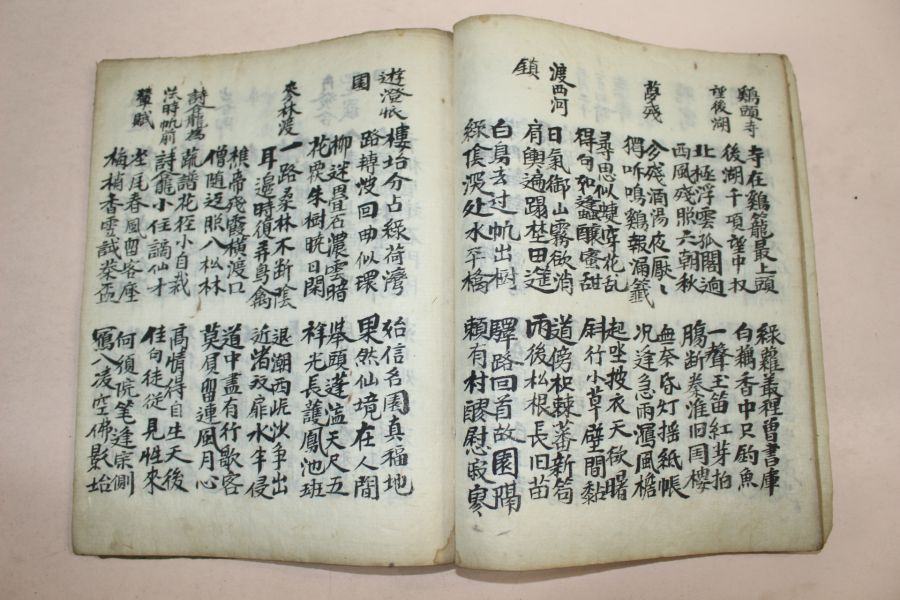 鷄頭寺
望後湖
寺在鷄籠最上頭
後湖千頃望中収
北極浮雲孤閣逈
西風殘照六朝秋
綠蘿叢裡曾書庫
白藕香中只釣魚
一聲玉笛紅芽拍
腸断秦淮旧円樓
夢殘
今殘酒渴夜厭〻
猧吠鳴鷄報漏籤
尋思似蜨穿花乱
得句如蠭釀蜜甜
血奈昏灯揺紙帳
况逢急雨瀉風檐
起坐披衣天欲曙
斜行小草壁間黏
渡西河
鎮
日氣御山霧欲消
肩輿遍蹋埜田遥
白鳥去边帆出樹
綠陰深处水平橋
道傍枳棘蕃新筍
雨後松根長旧苗
驛路回首故園隔
頼有村醪慰寂寥
遊澄懷
園
樓坮分占綠荷灣
路轉坡回曲似環
柳迷疊石濃雲暗
花夾朱樹晩日閑
始信名園真福地
果然仙境在人間
擧頭蓬溢天尺五
祥光長護鳳池班
来林渡
一路桑林不断陰
耳邊時復弄身禽
樵帝殘霞橫渡口
僧随返照八松林
退潮西岻沙争出
近泊扉水半侵
道中盡有行歌客
莫負留連風月心
詩龕為
法時帆前
輩賦
蔬譜花経小自栽
詩龕小住謫仙才
坐尾春風留客座
梅梢香雪試茶盃
高情得自生天後
佳句徒従見性來
何須院笔逢宗側
寫入凌空佛影坮